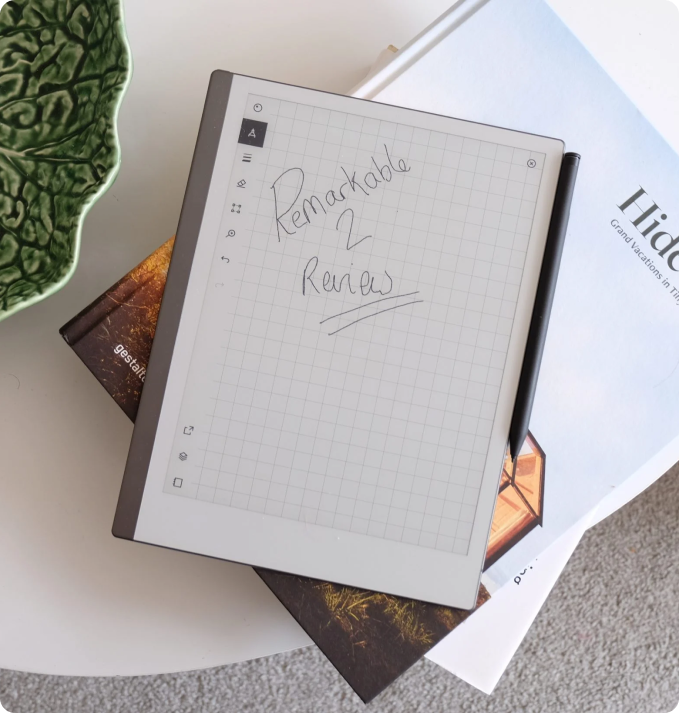 Remarkable
2
Review
Hide
Grand Vacations in Tiny
gestalte